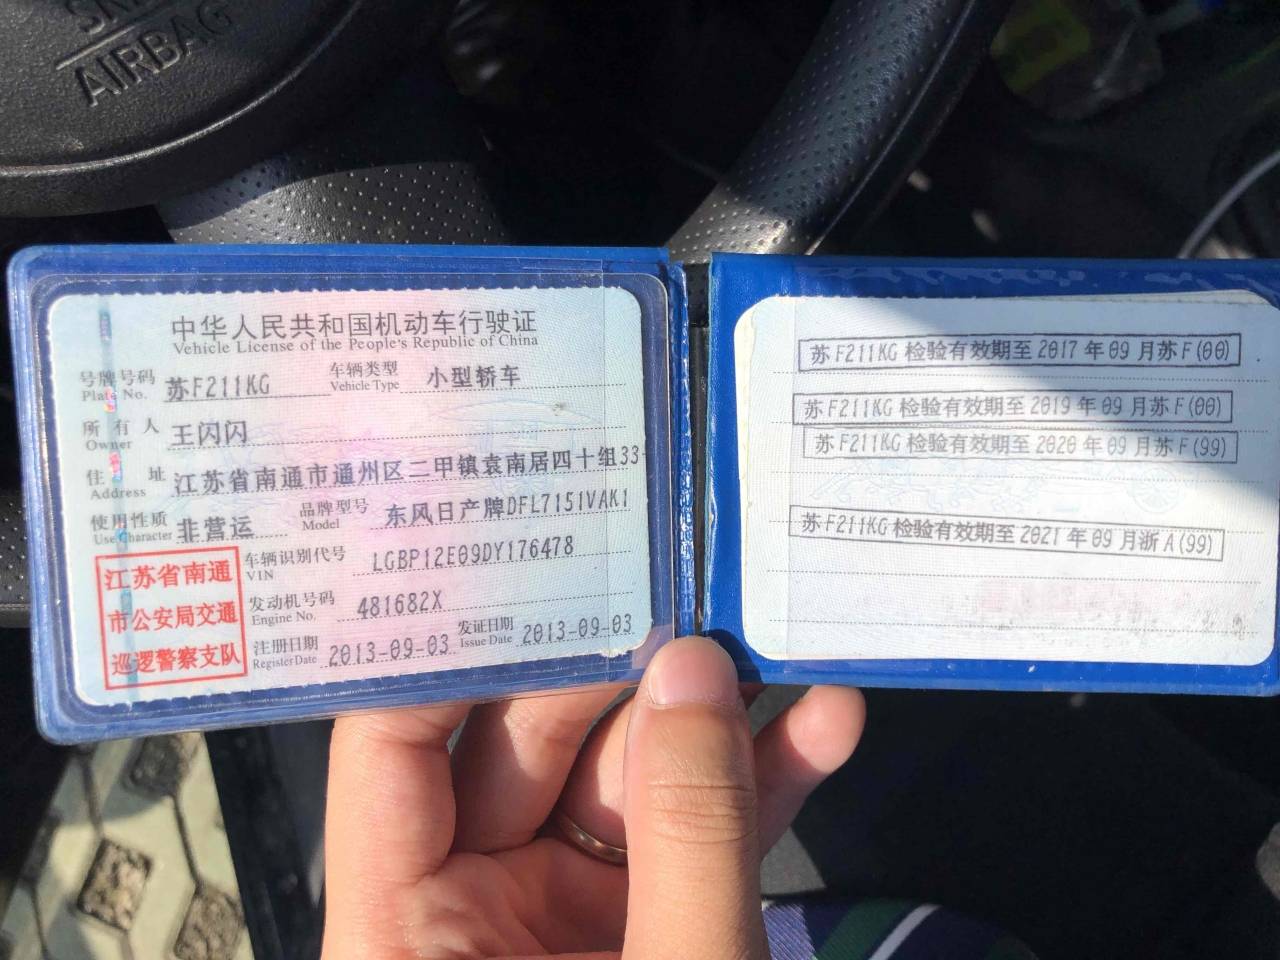 AIRBAG
中华人民共和国机动车行驶证
Vehicle License of the People's Republic of China
号牌号码 苏F211KG 车辆类型 小型轿车
Plate No. Vehicle Type
所有人 王闪闪
Owner
住址 江苏省南通市通州区二甲镇袁南居四十组33
Address
使用性质 非营运 品牌型号 东风日产牌DFL7151VAK1
Use Character Model
江苏省南通
市公安局交通
巡逻警察支队
车辆识别代号 LGBP12E09DY176478
VIN
发动机号码 481682X
Engine No.
注册日期 2013-09-03 发证日期 2013-09-03
Register Date Issue Date
苏F211KG 检验有效期至 2017 年 09 月苏F(00)
苏F211KG 检验有效期至 2019 年 09 月苏F(00)
苏F211KG 检验有效期至 2020 年 09 月苏F(99)
苏F211KG 检验有效期至 2021 年 09 月浙A(99)